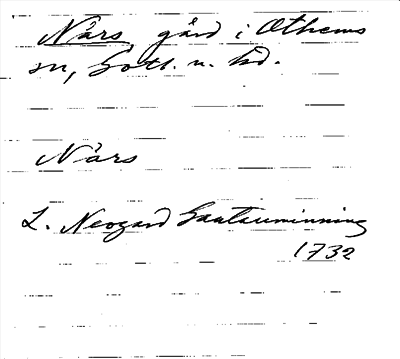 Nårs gård i Othems
sn, Gotl. n. hd.
Nårs
L. Neogard Gautauminning
1732